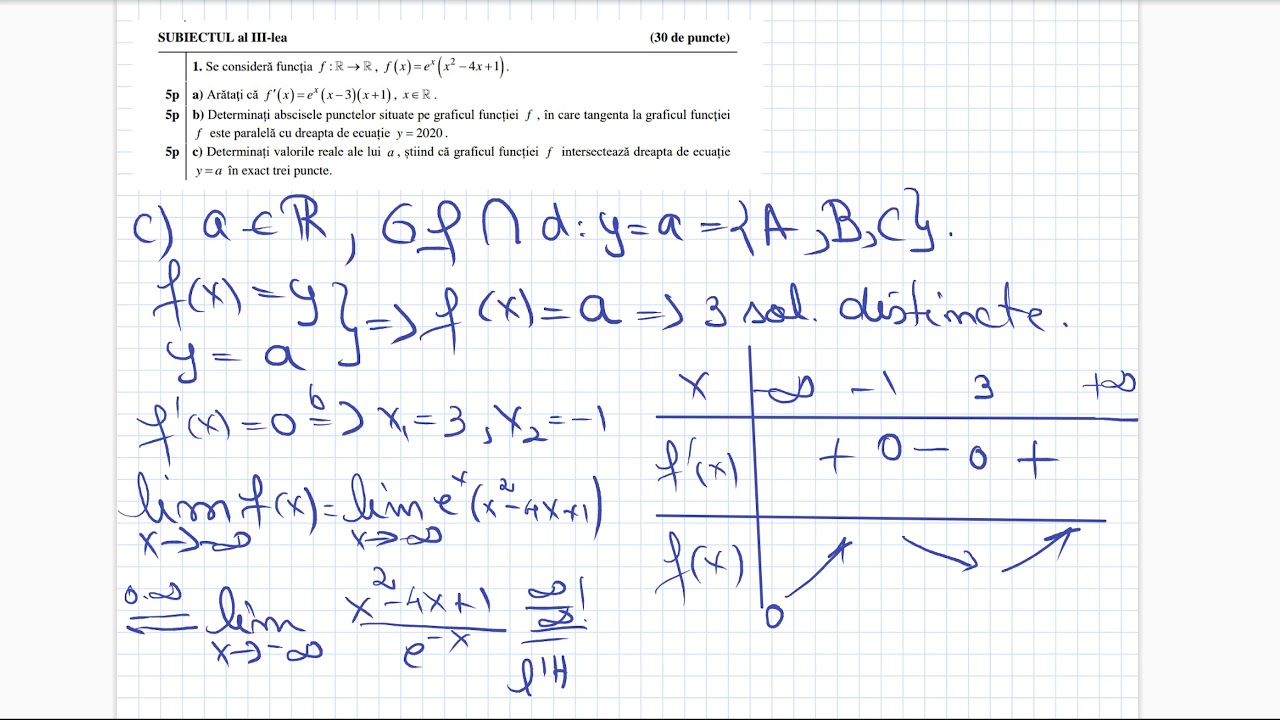 SUBIECTUL al III-lea (30 de puncte)
1. Se consideră funcția f : ℝ → ℝ, f(x) = eˣ(x² − 4x + 1).
5p a) Arătați că f′(x) = eˣ(x − 3)(x + 1), x ∈ ℝ.
5p b) Determinați abscisele punctelor situate pe graficul funcției f, în care tangenta la graficul funcției
f este paralelă cu dreapta de ecuație y = 2020.
5p c) Determinați valorile reale ale lui a, știind că graficul funcției f intersectează dreapta de ecuație
y = a în exact trei puncte.
c) a ∈ ℝ, Gf ∩ d: y = a = {A, B, C}.
f(x) = y
y = a } => f(x) = a => 3 sol. distincte.
f'(x) = 0 =b> x₁ = 3, x₂ = −1
lim f(x) = lim eˣ(x² − 4x + 1)
x→−∞ x→−∞
0·∞ = lim (x² − 4x + 1)/e⁻ˣ ∞/∞! = l'H
x→−∞
x −∞ −1 3 +∞
f'(x) + 0 − 0 +
f(x) 0 ↗ ↘ ↗